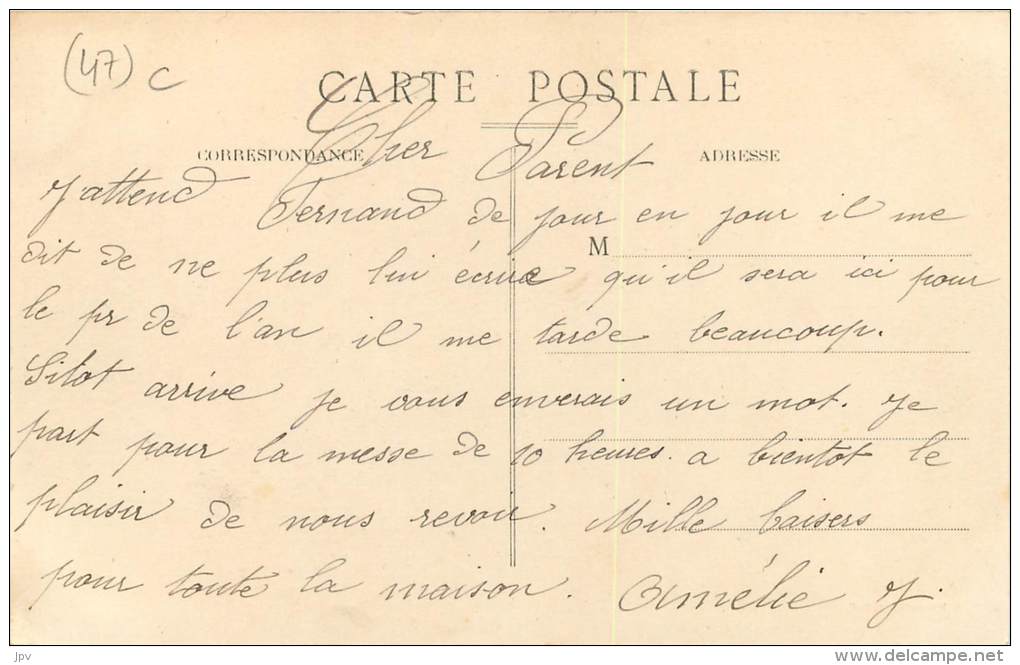 (47) C
CARTE POSTALE
CORRESPONDANCE
ADRESSE
Cher Parent
J'attend Fernand de jour en jour il me
M
dit de ne plus lui écrire qu'il sera ici pour
le pr de l'an il me tarde beaucoup.
Sitot arrive je vous enverais un mot. Je
part pour la messe de 10 heures. a bientot le
plaisir de nous revoir. Mille baisers
pour toute la maison. Amélie J.
jpv
www.delcampe.net